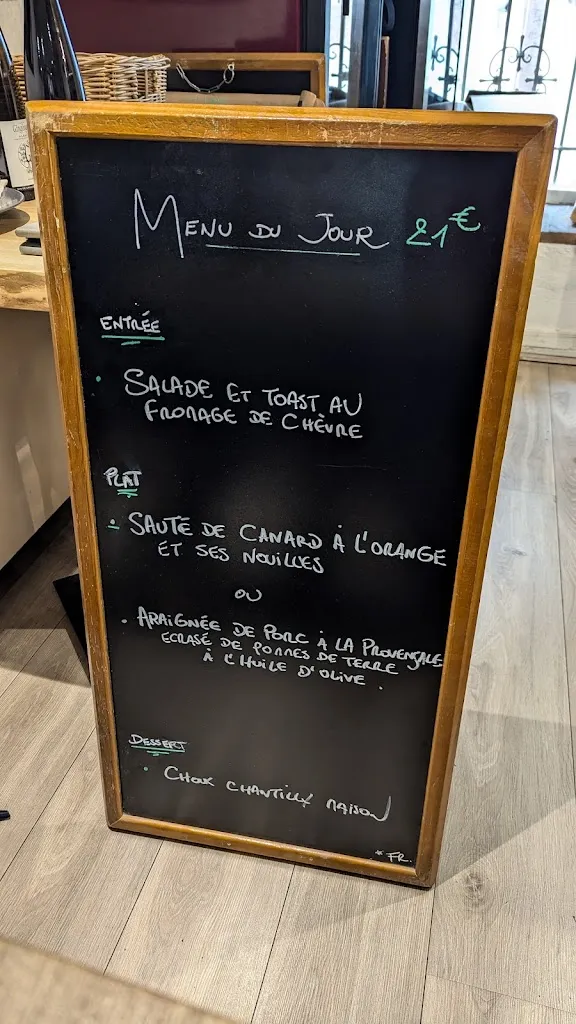 MENU DU JOUR 21€
ENTRÉE
• SALADE ET TOAST AU
FROMAGE DE CHÈVRE
PLAT
• SAUTÉ DE CANARD À L'ORANGE
ET SES NOUILLES
OU
• ARAIGNÉE DE PORC À LA PROVENÇALE
ECRASÉ DE POMMES DE TERRE
À L'HUILE D'OLIVE.
DESSERT
• CHOUX CHANTILLY MAISON
* FR.